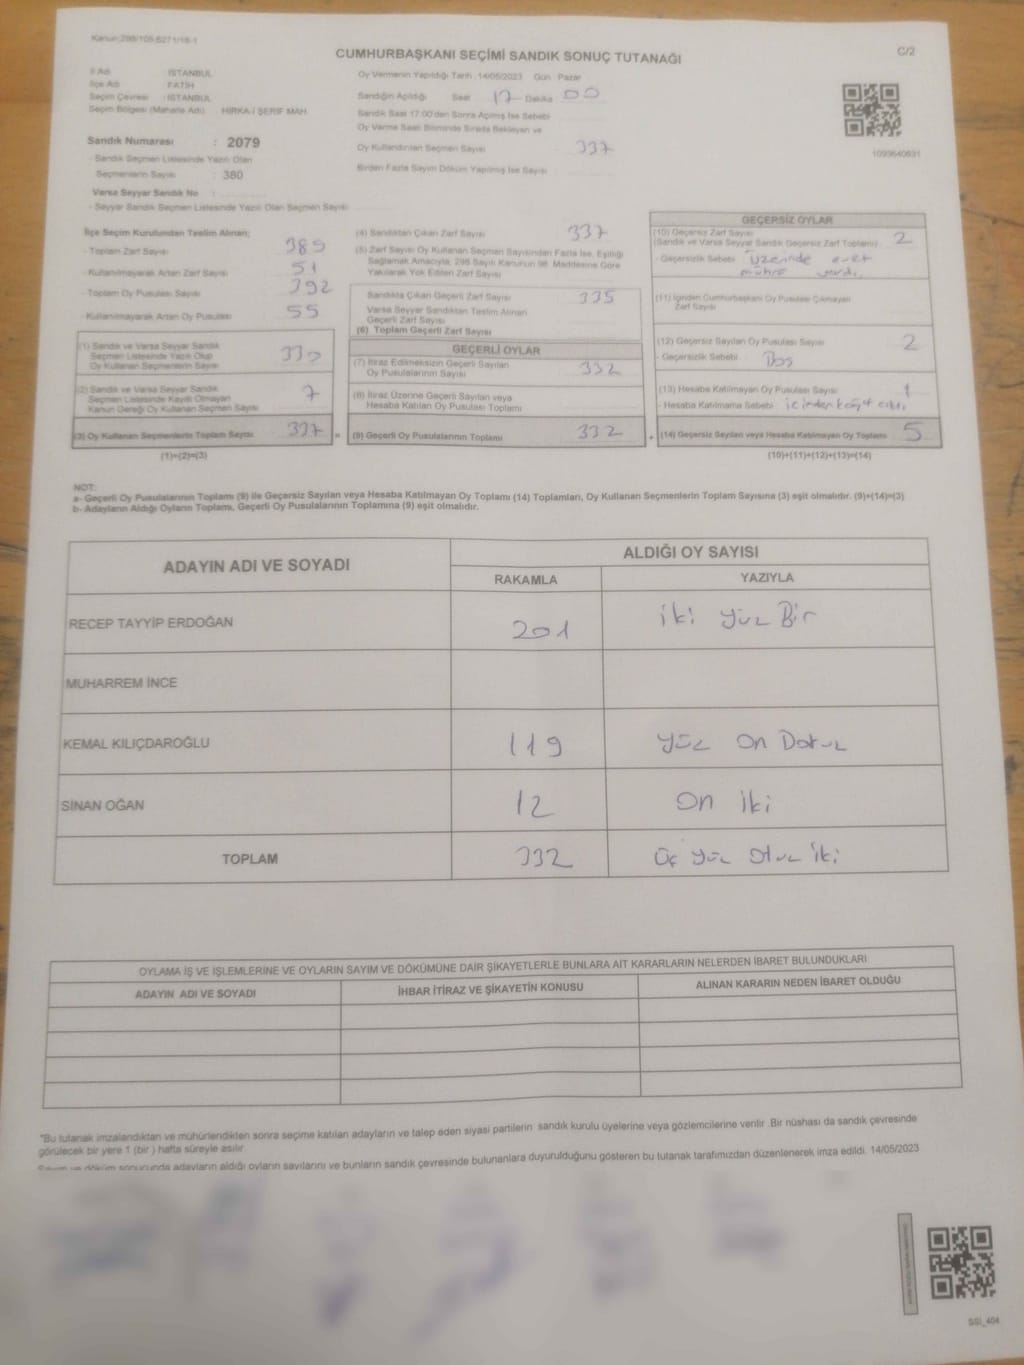 Kanun:298/105,6271/18-1
CUMHURBAŞKANI SEÇİMİ SANDIK SONUÇ TUTANAĞI
C/2
İl Adı : İSTANBUL
İlçe Adı : FATİH
Seçim Çevresi : İSTANBUL
Seçim Bölgesi (Mahalle Adı) HIRKA-İ ŞERİF MAH.
Sandık Numarası : 2079
- Sandık Seçmen Listesinde Yazılı Olan
Seçmenlerin Sayısı : 380
Varsa Seyyar Sandık No :
- Seyyar Sandık Seçmen Listesinde Yazılı Olan Seçmen Sayısı
Oy Vermenin Yapıldığı Tarih : 14/05/2023 Gün : Pazar
Sandığın Açıldığı Saat 17 Dakika 00
Sandık Saat 17:00'den Sonra Açılmış İse Sebebi
Oy Verme Saati Bitiminde Sırada Bekleyen ve
Oy Kullandırılan Seçmen Sayısı 337
Birden Fazla Sayım Döküm Yapılmış İse Sayısı
1093640631
İlçe Seçim Kurulundan Teslim Alınan;
- Toplam Zarf Sayısı 389
- Kullanılmayarak Artan Zarf Sayısı 51
- Toplam Oy Pusulası Sayısı 392
- Kullanılmayarak Artan Oy Pusulası 55
(1) Sandık ve Varsa Seyyar Sandık
Seçmen Listesinde Yazılı Olup
Oy Kullanan Seçmenlerin Sayısı 330
(2) Sandık ve Varsa Seyyar Sandık
Seçmen Listesinde Kayıtlı Olmayan
Kanun Gereği Oy Kullanan Seçmen Sayısı 7
(3) Oy Kullanan Seçmenlerin Toplam Sayısı 337 =
(1)+(2)=(3)
(4) Sandıktan Çıkan Zarf Sayısı 337
(5) Zarf Sayısı Oy Kullanan Seçmen Sayısından Fazla İse, Eşitliği
Sağlamak Amacıyla, 298 Sayılı Kanunun 98. Maddesine Göre
Yakılarak Yok Edilen Zarf Sayısı
Sandıkta Çıkan Geçerli Zarf Sayısı 335
Varsa Seyyar Sandıktan Teslim Alınan
Geçerli Zarf Sayısı
(6) Toplam Geçerli Zarf Sayısı
GEÇERLİ OYLAR
(7) İtiraz Edilmeksizin Geçerli Sayılan
Oy Pusulalarının Sayısı 332
(8) İtiraz Üzerine Geçerli Sayılan veya
Hesaba Katılan Oy Pusulası Toplamı
(9) Geçerli Oy Pusulalarının Toplamı 332 +
GEÇERSİZ OYLAR
(10) Geçersiz Zarf Sayısı
(Sandık ve Varsa Seyyar Sandık Geçersiz Zarf Toplamı) 2
- Geçersizlik Sebebi üzerinde evet
mührü vardı.
(11) İçinden Cumhurbaşkanı Oy Pusulası Çıkmayan
Zarf Sayısı
(12) Geçersiz Sayılan Oy Pusulası Sayısı 2
- Geçersizlik Sebebi : Boş
(13) Hesaba Katılmayan Oy Pusulası Sayısı 1
- Hesaba Katılmama Sebebi : içinden kağıt çıktı
(14) Geçersiz Sayılan veya Hesaba Katılmayan Oy Toplamı 5
(10)+(11)+(12)+(13)=(14)
NOT:
a- Geçerli Oy Pusulalarının Toplamı (9) ile Geçersiz Sayılan veya Hesaba Katılmayan Oy Toplamı (14) Toplamları, Oy Kullanan Seçmenlerin Toplam Sayısına (3) eşit olmalıdır. (9)+(14)=(3)
b- Adayların Aldığı Oyların Toplamı, Geçerli Oy Pusulalarının Toplamına (9) eşit olmalıdır.
ADAYIN ADI VE SOYADI ALDIĞI OY SAYISI
RAKAMLA YAZIYLA
RECEP TAYYİP ERDOĞAN 201 iki yüz Bir
MUHARREM İNCE
KEMAL KILIÇDAROĞLU 119 yüz on Dokuz
SİNAN OĞAN 12 on iki
TOPLAM 332 üç yüz otuz iki
OYLAMA İŞ VE İŞLEMLERİNE VE OYLARIN SAYIM VE DÖKÜMÜNE DAİR ŞİKAYETLERLE BUNLARA AİT KARARLARIN NELERDEN İBARET BULUNDUKLARI
ADAYIN ADI VE SOYADI İHBAR İTİRAZ VE ŞİKAYETİN KONUSU ALINAN KARARIN NEDEN İBARET OLDUĞU
"Bu tutanak imzalandıktan ve mühürlendikten sonra seçime katılan adayların ve talep eden siyasi partilerin sandık kurulu üyelerine veya gözlemcilerine verilir. Bir nüshası da sandık çevresinde
görülecek bir yere 1 (bir) hafta süreyle asılır.
Sayım ve döküm sonucunda adayların aldığı oyların sayılarını ve bunların sandık çevresinde bulunanlara duyurulduğunu gösteren bu tutanak tarafımızdan düzenlenerek imza edildi. 14/05/2023
SSİ_404